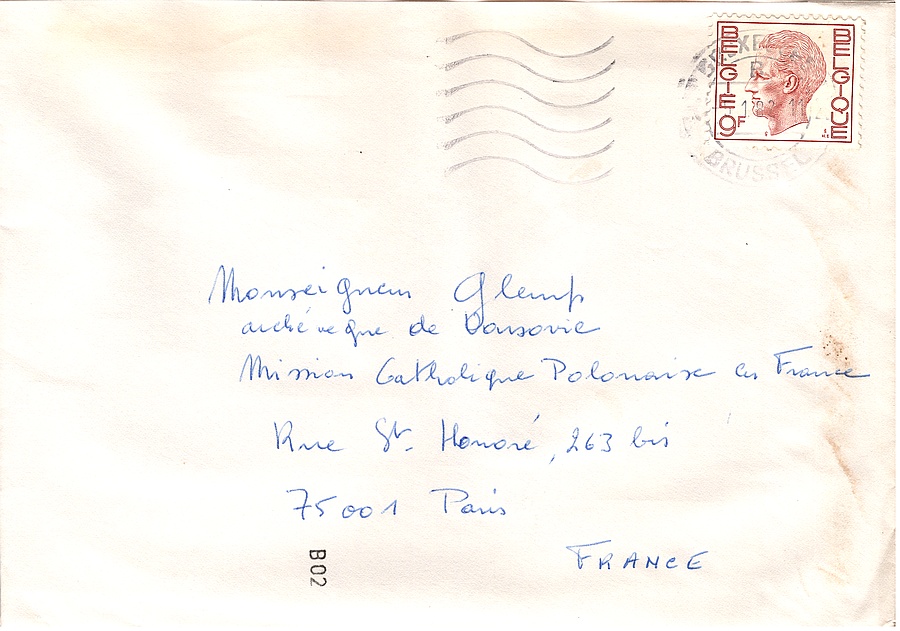 BELGIE 9F
BELGIQUE
BRUSSEL
Monseigneur Glemp
archévêque de Varsovie
Mission Catholique Polonaise en France
Rue St. Honoré, 263 bis
75001 Paris
FRANCE
B02